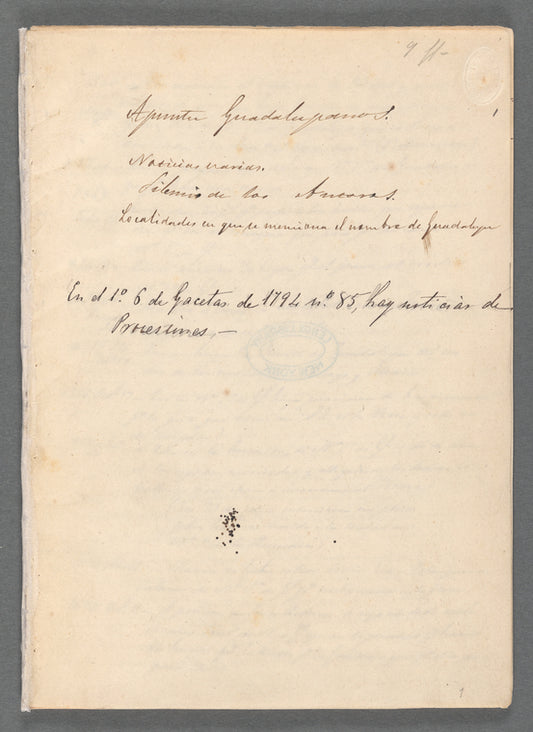 9 ff-
Apuntes Guadalupanos.
Noticias varias.
Silencio de los Autores.
Localidades en que se menciona el nombre de Guadalupe
En el tº. 6 de Gacetas de 1794 nº. 85, hay noticias de
Procesiones,—
1